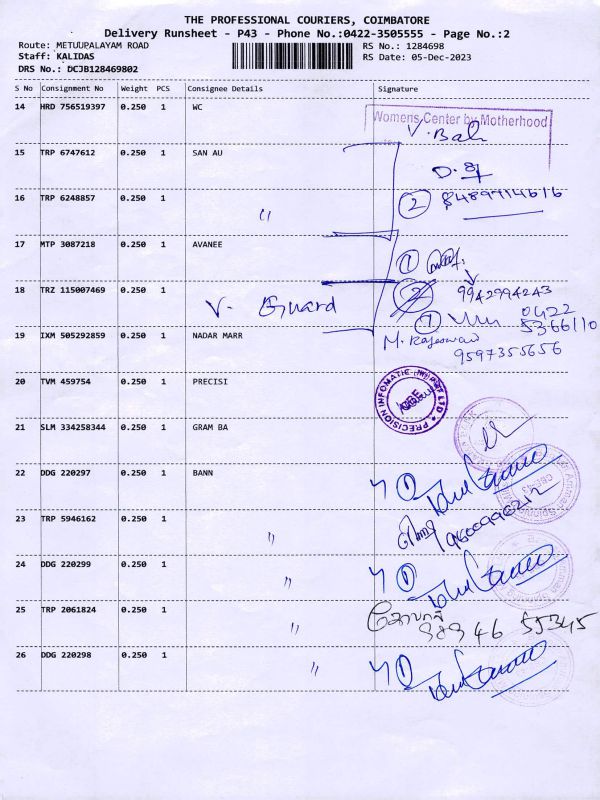 THE PROFESSIONAL COURIERS, COIMBATORE
Delivery Runsheet - P43 - Phone No.:0422-3505555 - Page No.:2
Route: METUUPALAYAM ROAD RS No.: 1284698
Staff: KALIDAS RS Date: 05-Dec-2023
DRS No.: DCJB128469802
S No Consignment No Weight PCS Consignee Details Signature
14 HRD 756519397 0.250 1 WC
Womens Center by Motherhood
15 TRP 6747612 0.250 1 SAN AU
16 TRP 6248857 0.250 1 " 2 8489714616
17 MTP 3087218 0.250 1 AVANEE
1
18 TRZ 115007469 0.250 1 V. Guard 2 9942994243
1 0422
5366110
19 IXM 505292859 0.250 1 NADAR MARR M. Rajeswari
9597355656
20 TVM 459754 0.250 1 PRECISI
21 SLM 334258344 0.250 1 GRAM BA
22 DDG 220297 0.250 1 BANN 1
23 TRP 5946162 0.250 1 "
24 DDG 220299 0.250 1 " 1
25 TRP 2061824 0.250 1 "
26 DDG 220298 0.250 1 " 1